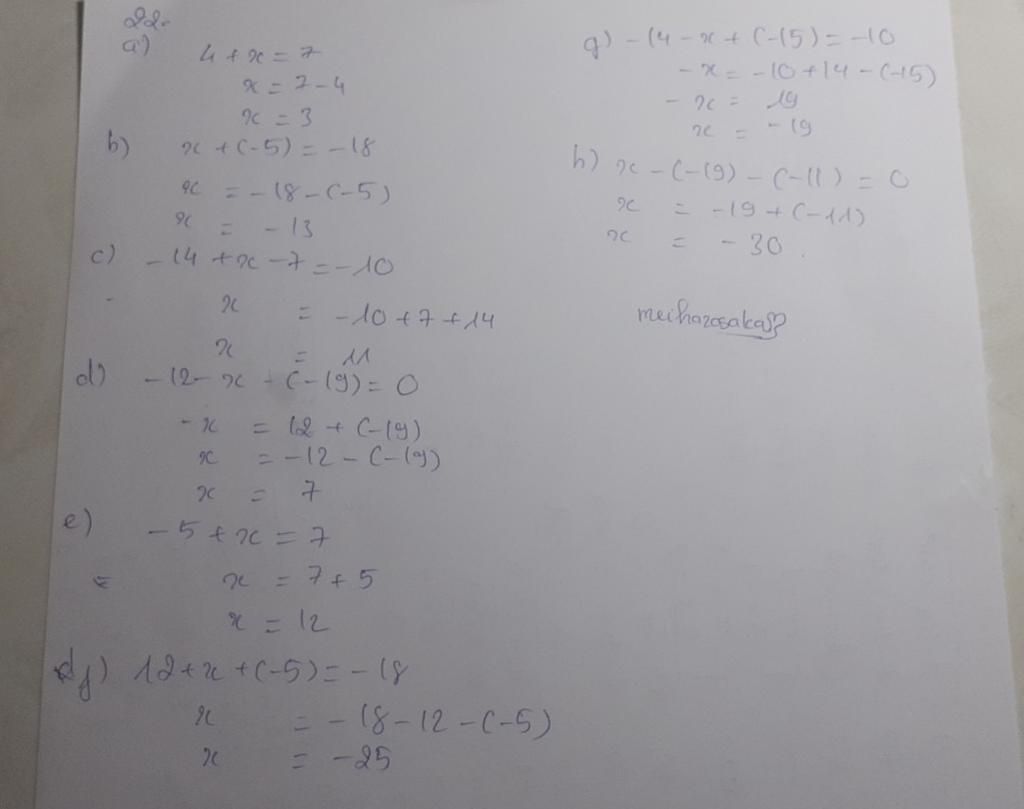 22.
a) 4 + x = 7
x = 7 - 4
x = 3
b) x + (-5) = -18
x = -18 - (-5)
x = -13
c) -14 + x - 7 = -10
x = -10 + 7 + 14
x = 11
d) -12 - x - (-19) = 0
-x = 12 + (-19)
x = -12 - (-19)
x = 7
e) -5 + x = 7
x = 7 + 5
x = 12
f) 12 + x + (-5) = -18
x = -18 - 12 - (-5)
x = -25
g) -14 - x + (-15) = -10
-x = -10 + 14 - (-15)
-x = 19
x = -19
h) x - (-19) - (-11) = 0
x = -19 + (-11)
x = -30.